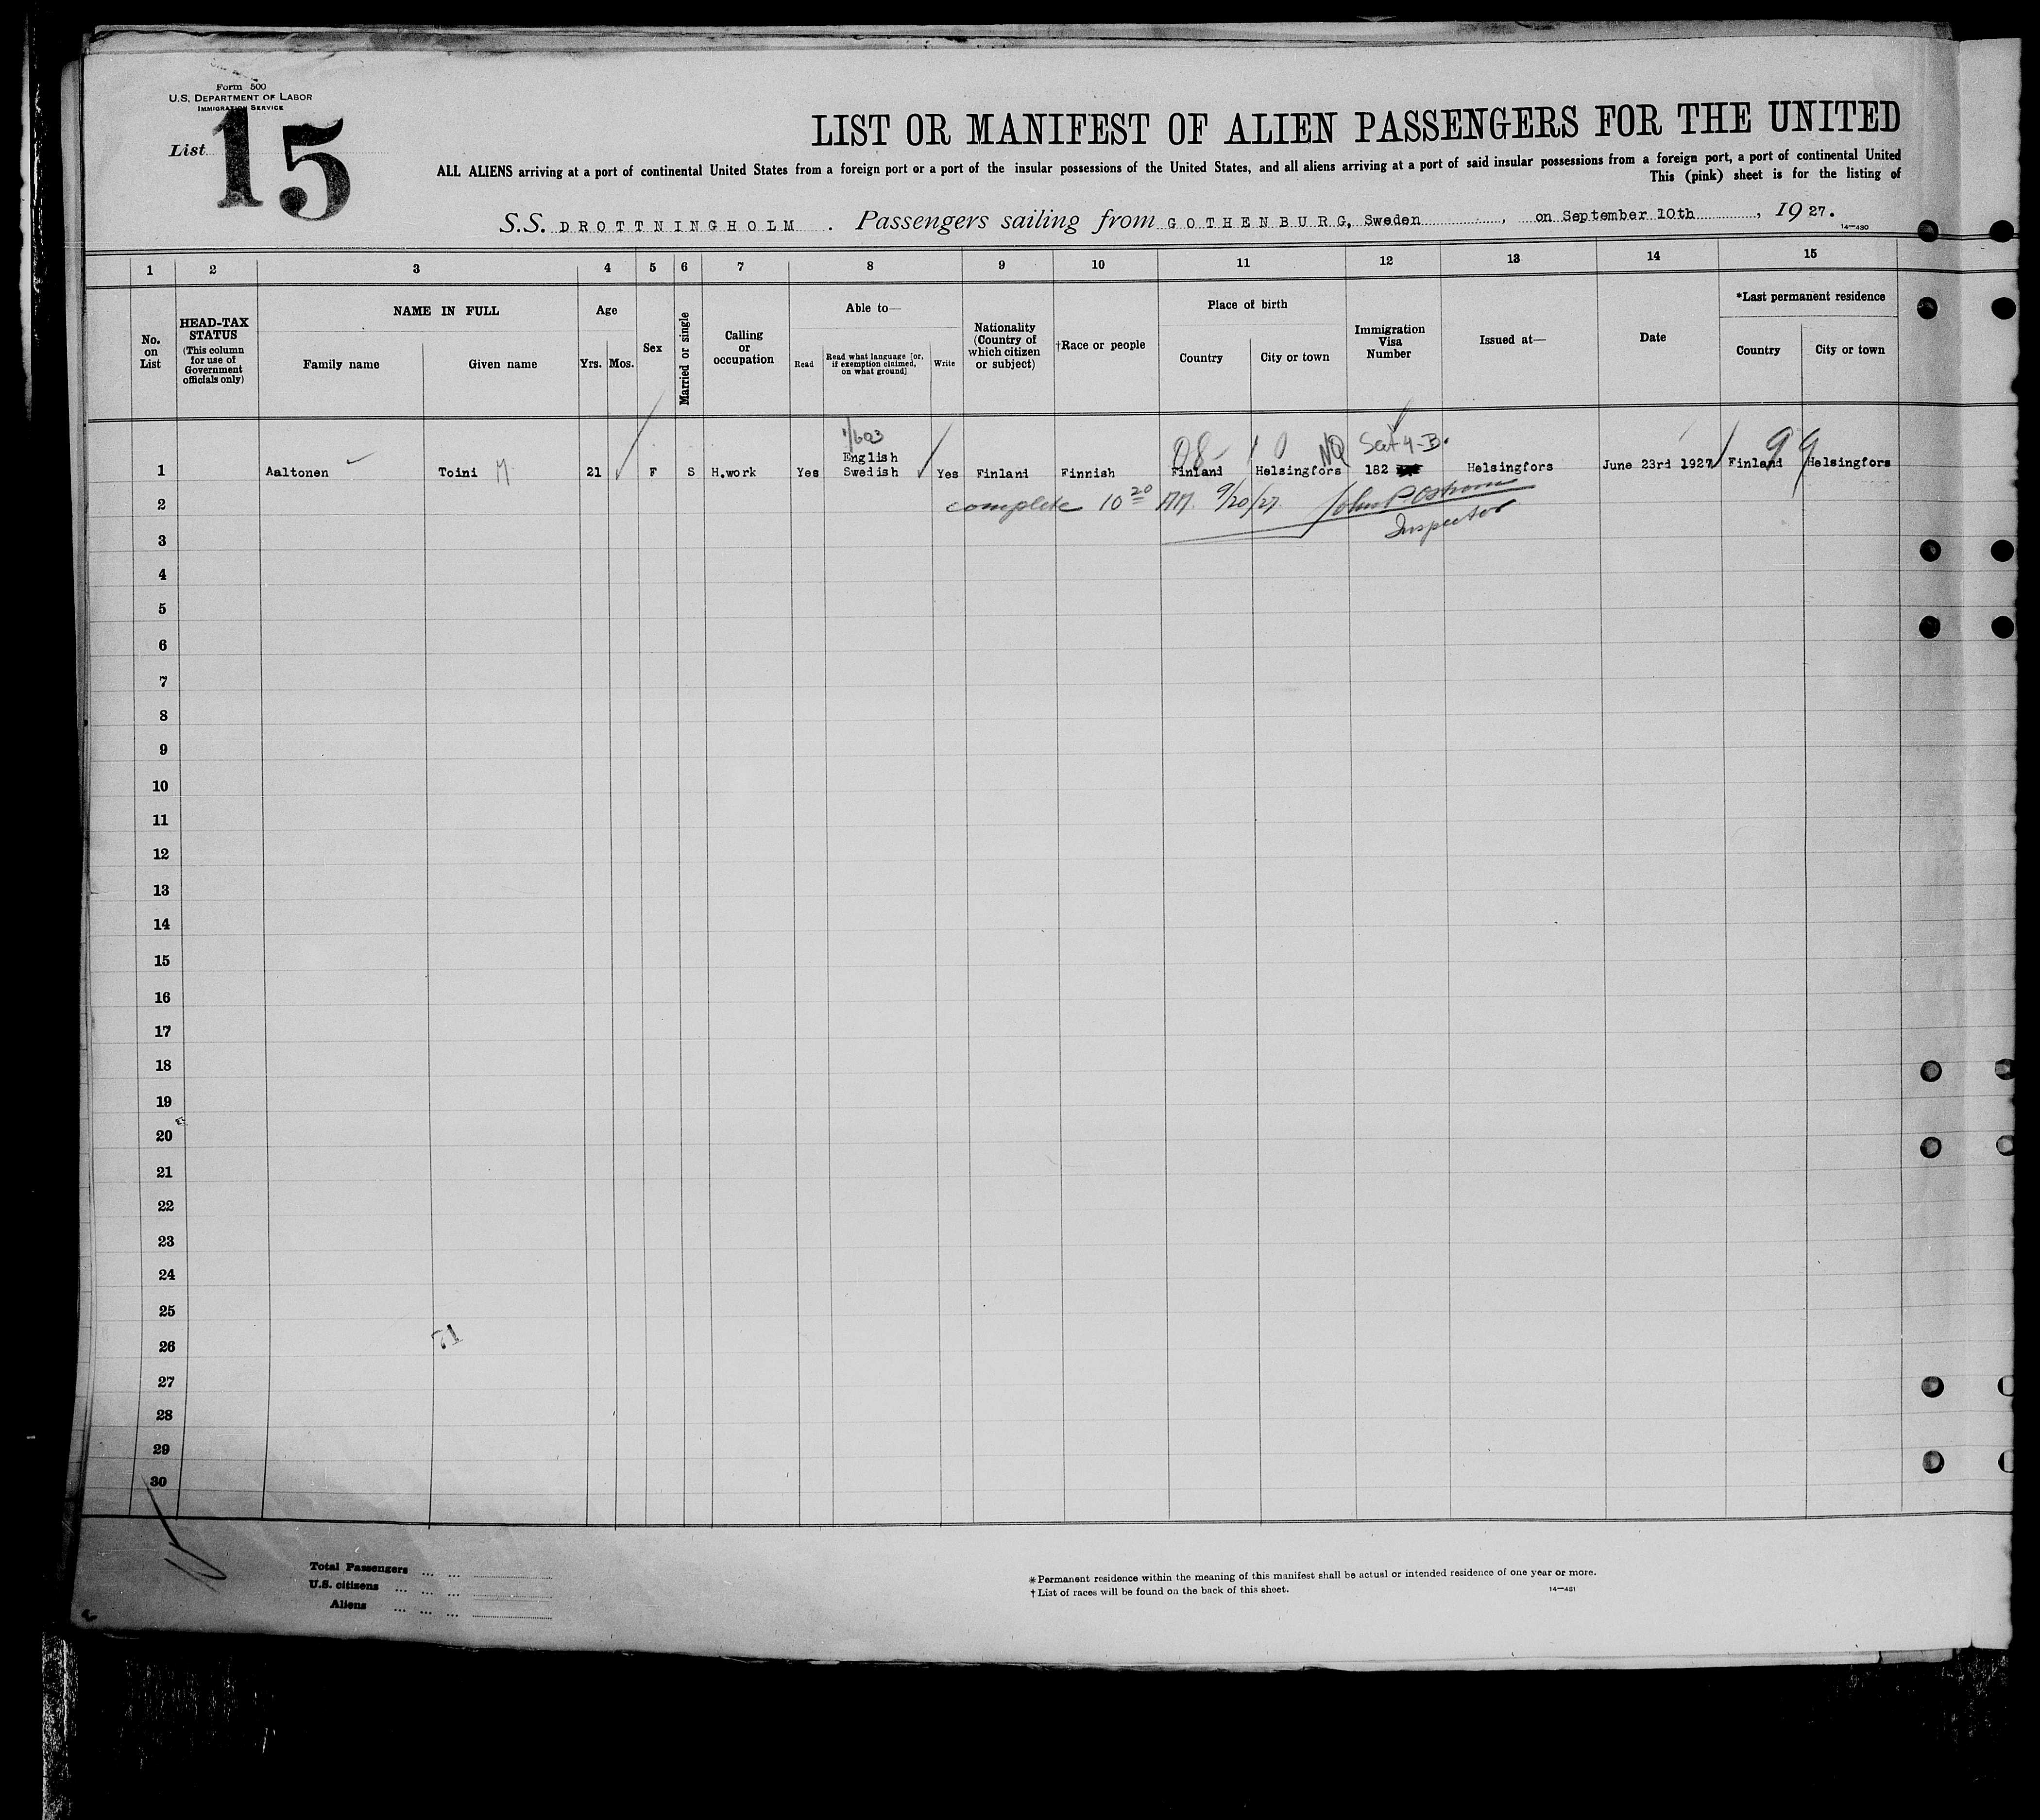 Form 500
U.S. DEPARTMENT OF LABOR
IMMIGRATION SERVICE
List 15
LIST OR MANIFEST OF ALIEN PASSENGERS FOR THE UNITED
ALL ALIENS arriving at a port of continental United States from a foreign port or a port of the insular possessions of the United States, and all aliens arriving at a port of said insular possessions from a foreign port, a port of continental United
This (pink) sheet is for the listing of
S.S. DROTTNINGHOLM. Passengers sailing from GOTHENBURG, Sweden, on September 10th, 19 27.
14—480
1 2 3 4 5 6 7 8 9 10 11 12 13 14 15
No. on List
HEAD-TAX STATUS (This column for use of Government officials only)
NAME IN FULL
Family name
Given name
Age
Yrs. Mos.
Sex
Married or single
Calling or occupation
Able to—
Read
Read what language [or, if exemption claimed, on what ground]
Write
Nationality (Country of which citizen or subject)
†Race or people
Place of birth
Country
City or town
Immigration Visa Number
Issued at—
Date
*Last permanent residence
Country
City or town
1/603
English
08- NQ Sect 4-B. 99
1 Aaltonen Toini M 21 F S H.work Yes Swedish Yes Finland Finnish Finland Helsingfors 182 Helsingfors June 23rd 1927 Finland Helsingfors
2 complete 10 20 AM. 9/20/27. John P. Ostrom
Inspector
3
4
5
6
7
8
9
10
11
12
13
14
15
16
17
18
19
20
21
22
23
24
25
71
26
27
28
29
30
Total Passengers ... ...
U.S. citizens ... ... ...
Aliens ... ... ...
*Permanent residence within the meaning of this manifest shall be actual or intended residence of one year or more.
†List of races will be found on the back of this sheet.
14—481